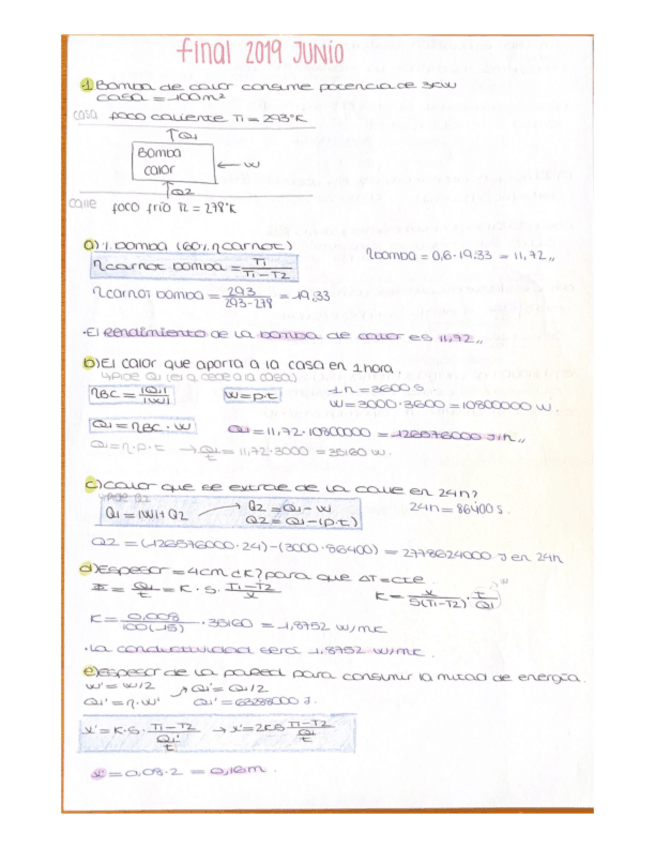 final 2019 JUNIO
1 Bomba de calor consume potencia de 3KW
casa = 100m²
casa foco caliente T1 = 293°K
↑Q1
Bomba calor ← W
↑Q2
calle foco frío T2 = 278°K
a) η bomba (60% ηcarnot)
ηcarnot bomba = T1 / (T1 - T2)
ηbomba = 0,6 · 19,33 = 11,72,,
ηcarnot bomba = 293 / (293-278) = 19,33
· El rendimiento de la bomba de calor es 11,72,,
b) El calor que aporta a la casa en 1 hora.
ηBC = |Q1| / |W|
W = p·t
1h = 3600 s
W = 3000 · 3600 = 10800000 W.
Q1 = ηBC · W
Q1 = 11,72 · 10800000 = 126576000 J/h,,
Q1 = η·P·t → Q1/t = 11,72 · 3000 = 35160 W.
c) Calor que se extrae de la calle en 24h?
↳Pide Q2
Q1 = |W| + Q2 → Q2 = Q1 - W
Q2 = Q1 - (p·t)
24h = 86400 s.
Q2 = (126576000 · 24) - (3000 · 86400) = 2778624000 J en 24h
d) Espesor = 4cm ¿K? para que ΔT = cte
Φ = Q1/t = K · S · (T1 - T2)/x
K = x / S(T1 - T2) · t/Q1
100(15) · 35160 = 1,8752 W/mK
· La conductividad será 1,8752 W/mK.
e) Espesor de la pared para consumir la mitad de energía.
W' = W/2 ↗ Q1' = Q1/2
Q1' = η · W' Q1' = 63288000 J.
x' = K·S · (T1 - T2) / (Q1'/t) → x' = 2KS (T1 - T2) / (Q1/t)
x' = 0,08 · 2 = 0,16m.